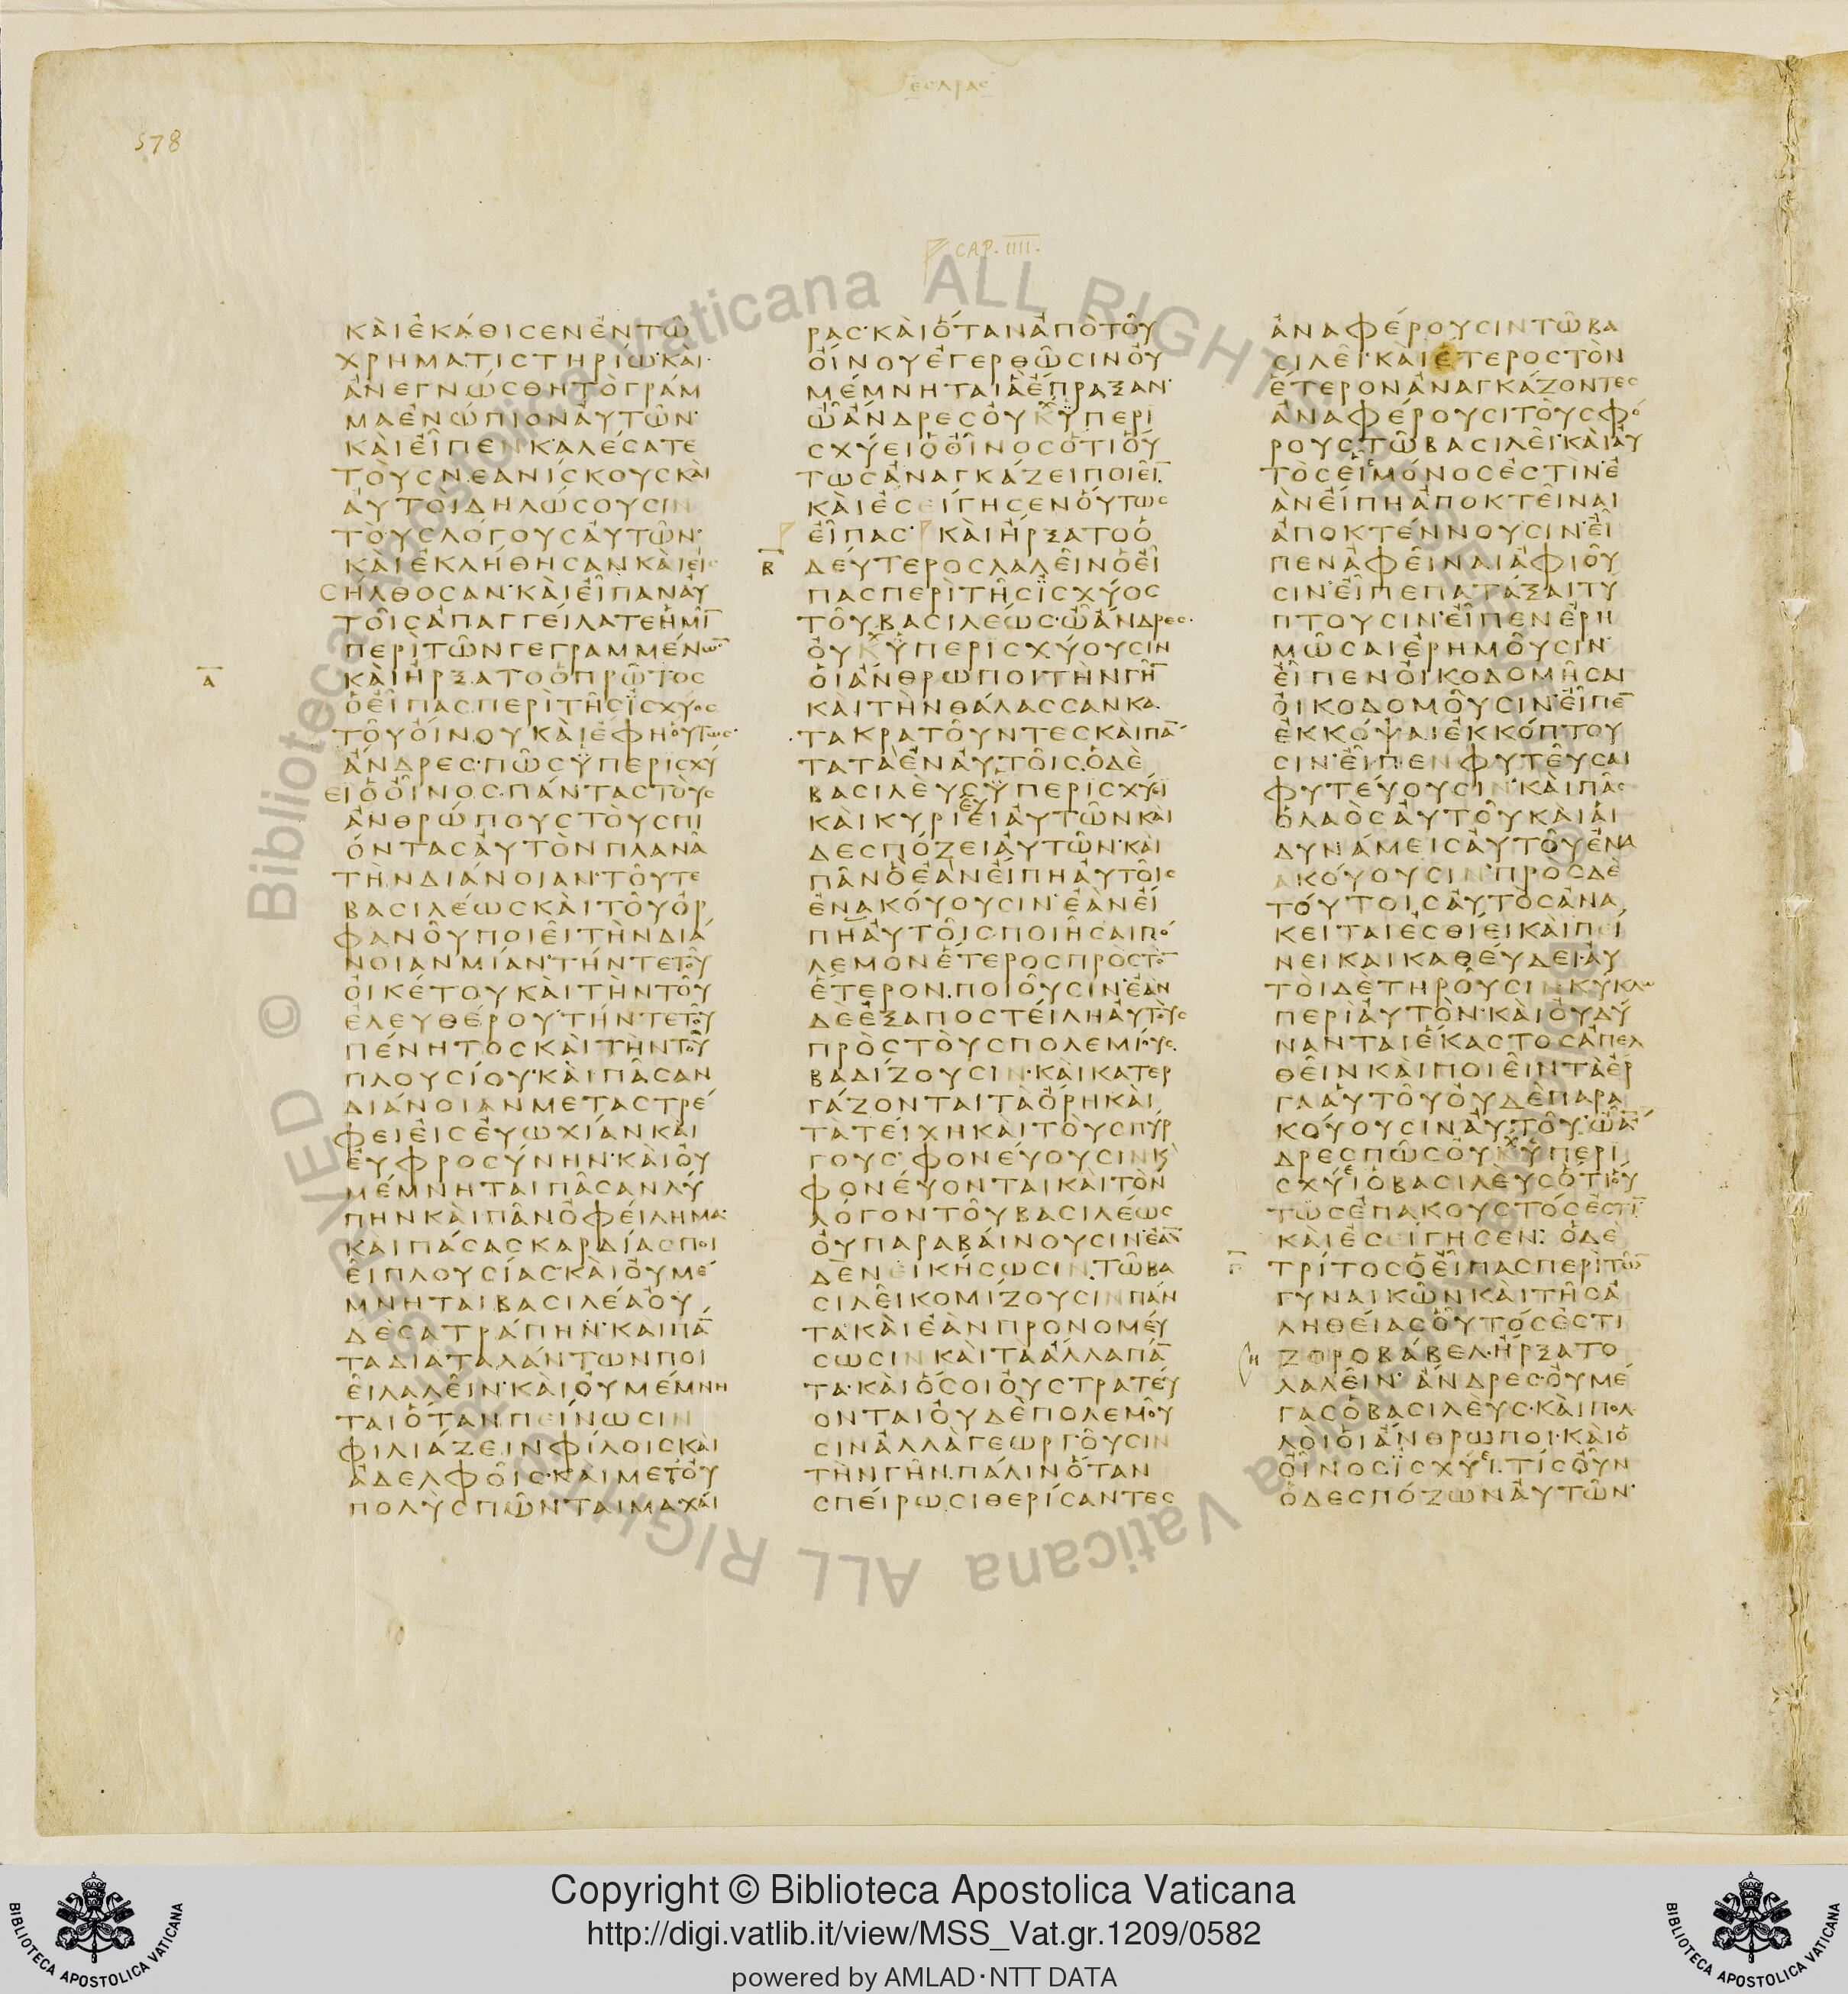 ΕСΔΡΑС
578
CAP. IIII.
ΚΑΙΕΚΑΘΙСΕΝΕΝΤΩ
ΧΡΗΜΑΤΙСΤΗΡΙΩ·ΚΑΙ·
ΑΝΕΓΝΩСΘΗΤΟΓΡΑΜ
ΜΑΕΝΩΠΙΟΝΑΥΤΩΝ·
ΚΑΙΕΙΠΕΝΚΑΛΕСΑΤΕ
ΤΟΥСΝΕΑΝΙСΚΟΥСΚΑΙ
ΑΥΤΟΙΔΗΛΩСΟΥСΙΝ
ΤΟΥСΛΟΓΟΥСΑΥΤΩΝ·
ΚΑΙΕΚΛΗΘΗСΑΝΚΑΙΕΙС
СΗΛΘΟСΑΝ·ΚΑΙΕΙΠΑΝΑΥ
ΤΟΙСΑΠΑΓΓΕΙΛΑΤΕΗΜΙ̅
ΠΕΡΙΤΩΝΓΕΓΡΑΜΜΕΝΩ̅·
Α
ΚΑΙΗΡΞΑΤΟΟΠΡΩΤΟС
ΟΕΙΠΑСΠΕΡΙΤΗСΪСΧΥΟС
ΤΟΥΟΙΝΟΥΚΑΙΕΦΗΟΥΤΩС·
ΑΝΔΡΕС·ΠΩСΫΠΕΡΙСΧΥ
ΕΙΟΟΙΝΟС·ΠΑΝΤΑСΤΟΥС
ΑΝΘΡΩΠΟΥСΤΟΥСΠΙ
ΟΝΤΑСΑΥΤΟΝΠΛΑΝΑ
ΤΗΝΔΙΑΝΟΙΑΝ·ΤΟΥΤΕ
ΒΑСΙΛΕΩСΚΑΙΤΟΥΟΡ
ΦΑΝΟΥΠΟΙΕΙΤΗΝΔΙΑ
ΝΟΙΑΝΜΙΑΝ·ΤΗΝΤΕΤΟΥ
ΟΙΚΕΤΟΥΚΑΙΤΗΝΤΟΥ
ΕΛΕΥΘΕΡΟΥ·ΤΗΝΤΕΤΟΥ
ΠΕΝΗΤΟСΚΑΙΤΗΝΤΟΥ
ΠΛΟΥСΙΟΥ·ΚΑΙΠΑСΑΝ
ΔΙΑΝΟΙΑΝΜΕΤΑСΤΡΕ
ΦΕΙΕΙСΕΥΩΧΙΑΝΚΑΙ
ΕΥΦΡΟСΥΝΗΝ·ΚΑΙΟΥ
ΜΕΜΝΗΤΑΙΠΑСΑΝΛΥ
ΠΗΝΚΑΙΠΑΝΟΦΕΙΛΗΜΑ·
ΚΑΙΠΑСΑСΚΑΡΔΙΑСΠΟΙ
ΕΙΠΛΟΥСΙΑС·ΚΑΙΟΥΜΕ
ΜΝΗΤΑΙΒΑСΙΛΕΑΟΥ
ΔΕСΑΤΡΑΠΗΝ·ΚΑΙΠΑ̅
ΤΑΔΙΑΤΑΛΑΝΤΩΝΠΟΙ
ΕΙΛΑΛΕΙΝ·ΚΑΙΟΥΜΕΜΝΗ
ΤΑΙΟΤΑΝΠΕΙΝΩСΙΝ
ΦΙΛΙΑΖΕΙΝΦΙΛΟΙСΚΑΙ
ΑΔΕΛΦΟΙС·ΚΑΙΜΕΤΟΥ
ΠΟΛΥСΠΩΝΤΑΙΜΑΧΑΙ
ΡΑС·ΚΑΙΟΤΑΝΑΠΟΤΟΥ
ΟΙΝΟΥΕΓΕΡΘΩСΙΝΟΥ
ΜΕΜΝΗΤΑΙΑΕΠΡΑΞΑΝ·
ΩΑΝΔΡΕСΟΥΚΫΠΕΡΙ
СΧΥΕΙΟΟΙΝΟСΟΤΙΟΥ
ΤΩСΑΝΑΓΚΑΖΕΙΠΟΙΕΙ̅·
ΚΑΙΕСΕΙΓΗСΕΝΟΥΤΩС
ΕΙΠΑС· ΚΑΙΗΡΞΑΤΟΟ
Β
ΔΕΥΤΕΡΟСΛΑΛΕΙΝΟΕΙ
ΠΑСΠΕΡΙΤΗСΪСΧΥΟС
ΤΟΥΒΑСΙΛΕΩС·ΩΑΝΔΡΕС·
ΟΥΚΫΠΕΡΙСΧΥΟΥСΙΝ
ΟΙΑΝΘΡΩΠΟΙΤΗΝΓΗ̅
ΚΑΙΤΗΝΘΑΛΑССΑΝΚΑ
ΤΑΚΡΑΤΟΥΝΤΕСΚΑΙΠΑ̅
ΤΑΤΑΕΝΑΥΤΟΙС·ΟΔΕ
ΒΑСΙΛΕΥСΫΠΕΡΙСΧΥΕΙ
ΚΑΙΚΥΡΙΕΥΕΙΑΥΤΩΝΚΑΙ
ΔΕСΠΟΖΕΙΑΥΤΩΝ·ΚΑΙ
ΠΑΝΟΕΑΝΕΙΠΗΑΥΤΟΙС
ΕΝΑΚΟΥΟΥСΙΝ·ΕΑΝΕΙ
ΠΗΑΥΤΟΙСΠΟΙΗСΑΙΠΟ
ΛΕΜΟΝΕΤΕΡΟСΠΡΟСΤΟ̅
ΕΤΕΡΟΝ·ΠΟΙΟΥСΙΝ·ΕΑΝ
ΔΕΕΞΑΠΟСΤΕΙΛΗΑΥΤΟΥС
ΠΡΟСΤΟΥСΠΟΛΕΜΙΟΥС·
ΒΑΔΙΖΟΥСΙΝ·ΚΑΙΚΑΤΕΡ
ΓΑΖΟΝΤΑΙΤΑΟΡΗΚΑΙ
ΤΑΤΕΙΧΗΚΑΙΤΟΥСΠΥΡ
ΓΟΥС·ΦΟΝΕΥΟΥСΙΝΚ
ΦΟΝΕΥΟΝΤΑΙΚΑΙΤΟΝ
ΛΟΓΟΝΤΟΥΒΑСΙΛΕΩС
ΟΥΠΑΡΑΒΑΙΝΟΥСΙΝ·ΕΑ̅
ΔΕΝΕΙΚΗСΩСΙΝΤΩΒΑ
СΙΛΕΙΚΟΜΙΖΟΥСΙΝΠΑΝ
ΤΑΚΑΙΕΑΝΠΡΟΝΟΜΕΥ
СΩСΙΝΚΑΙΤΑΑΛΛΑΠΑ̅
ΤΑ·ΚΑΙΟСΟΙΟΥСΤΡΑΤΕΥ
ΟΝΤΑΙΟΥΔΕΠΟΛΕΜΟΥ
СΙΝΑΛΛΑΓΕΩΡΓΟΥСΙΝ
ΤΗΝΓΗΝ·ΠΑΛΙΝΟΤΑΝ
СΠΕΙΡΩСΙΘΕΡΙСΑΝΤΕС
ΑΝΑΦΕΡΟΥСΙΝΤΩΒΑ
СΙΛΕΙ·ΚΑΙΕΤΕΡΟСΤΟΝ
ΕΤΕΡΟΝΑΝΑΓΚΑΖΟΝΤΕС
ΑΝΑΦΕΡΟΥСΙΤΟΥСΦΟ
ΡΟΥСΤΩΒΑСΙΛΕΙ·ΚΑΙΑΥ
ΤΟСΕΙСΜΟΝΟСΕСΤΙΝ·Ε
ΑΝΕΙΠΗΑΠΟΚΤΕΙΝΑΙ
ΑΠΟΚΤΕΝΝΟΥСΙΝ·ΕΙ
ΠΕΝΑΦΕΙΝΑΙΑΦΙΟΥ
СΙΝ·ΕΙΠΕΠΑΤΑΞΑΙΤΥ
ΠΤΟΥСΙΝ·ΕΙΠΕΝΕΡΗ
ΜΩСΑΙΕΡΗΜΟΥСΙΝ·
ΕΙΠΕΝΟΙΚΟΔΟΜΗСΑΙ
ΟΙΚΟΔΟΜΟΥСΙΝ·ΕΙΠΕ̅
ΕΚΚΟΨΑΙΕΚΚΟΠΤΟΥ
СΙΝ·ΕΙΠΕΝΦΥΤΕΥСΑΙ
ΦΥΤΕΥΟΥСΙΝ·ΚΑΙΠΑС
ΟΛΑΟСΑΥΤΟΥΚΑΙΑΙ
ΔΥΝΑΜΕΙСΑΥΤΟΥΕΝΑ
ΑΚΟΥΟΥСΙΝ·ΠΡΟСΔΕ
ΤΟΥΤΟΙСΑΥΤΟСΑΝΑ
ΚΕΙΤΑΙΕСΘΙΕΙΚΑΙΠΕΙ
ΝΕΙΚΑΙΚΑΘΕΥΔΕΙ·ΑΥ
ΤΟΙΔΕΤΗΡΟΥСΙΝΚΥΚΛΩ
ΠΕΡΙΑΥΤΟΝ·ΚΑΙΟΥΔΥ
ΝΑΝΤΑΙΕΚΑСΤΟСΑΠΕΛ
ΘΕΙΝΚΑΙΠΟΙΕΙΝΤΑΕΡ
ΓΑΑΥΤΟΥΟΥΔΕΠΑΡΑ
ΚΟΥΟΥСΙΝΑΥΤΟΥ·ΩΑ̅
ΔΡΕСΠΩСΟΥΚΫΠΕΡΙ
СΧΥΕΙΟΒΑСΙΛΕΥСΟΤΙΟΥ
ΤΩСΕΠΑΚΟΥСΤΟСΕСΤΙ̅
ΚΑΙΕСΕΙΓΗСΕΝ: ΟΔΕ
Γ
ΤΡΙΤΟСΟΕΙΠΑСΠΕΡΙΤΩ̅
ΓΥΝΑΙΚΩΝΚΑΙΤΗСΑ
ΛΗΘΕΙΑСΟΥΤΟСΕСΤΙ
Η
ΖΟΡΟΒΑΒΕΛ·ΗΡΞΑΤΟ
ΛΑΛΕΙΝ· ΑΝΔΡΕС·ΟΥΜΕ
ΓΑСΟΒΑСΙΛΕΥС·ΚΑΙΠΟΛ
ΛΟΙΟΙΑΝΘΡΩΠΟΙ·ΚΑΙΟ
ΟΙΝΟСΪСΧΥΕΙ·ΤΙСΟΥΝ
ΟΔΕСΠΟΖΩΝΑΥΤΩΝ·
Biblioteca Apostolica Vaticana ALL RIGHTS RESERVED ©
BIBLIOTECA APOSTOLICA VATICANA
Copyright © Biblioteca Apostolica Vaticana
http://digi.vatlib.it/view/MSS_Vat.gr.1209/0582
powered by AMLAD·NTT DATA
BIBLIOTECA APOSTOLICA VATICANA